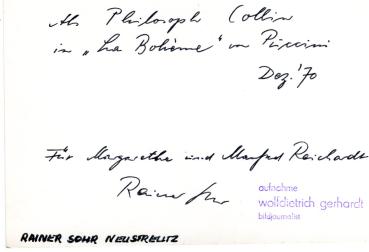 Als Philosoph Collin
in „La Bohème" von Puccini
Dez. '70
Für Margarethe und Manfred Reichardt
Rainer Sohr
aufnahme
wolfdietrich gerhardt
bildjournalist
RAINER SOHR NEUSTRELITZ